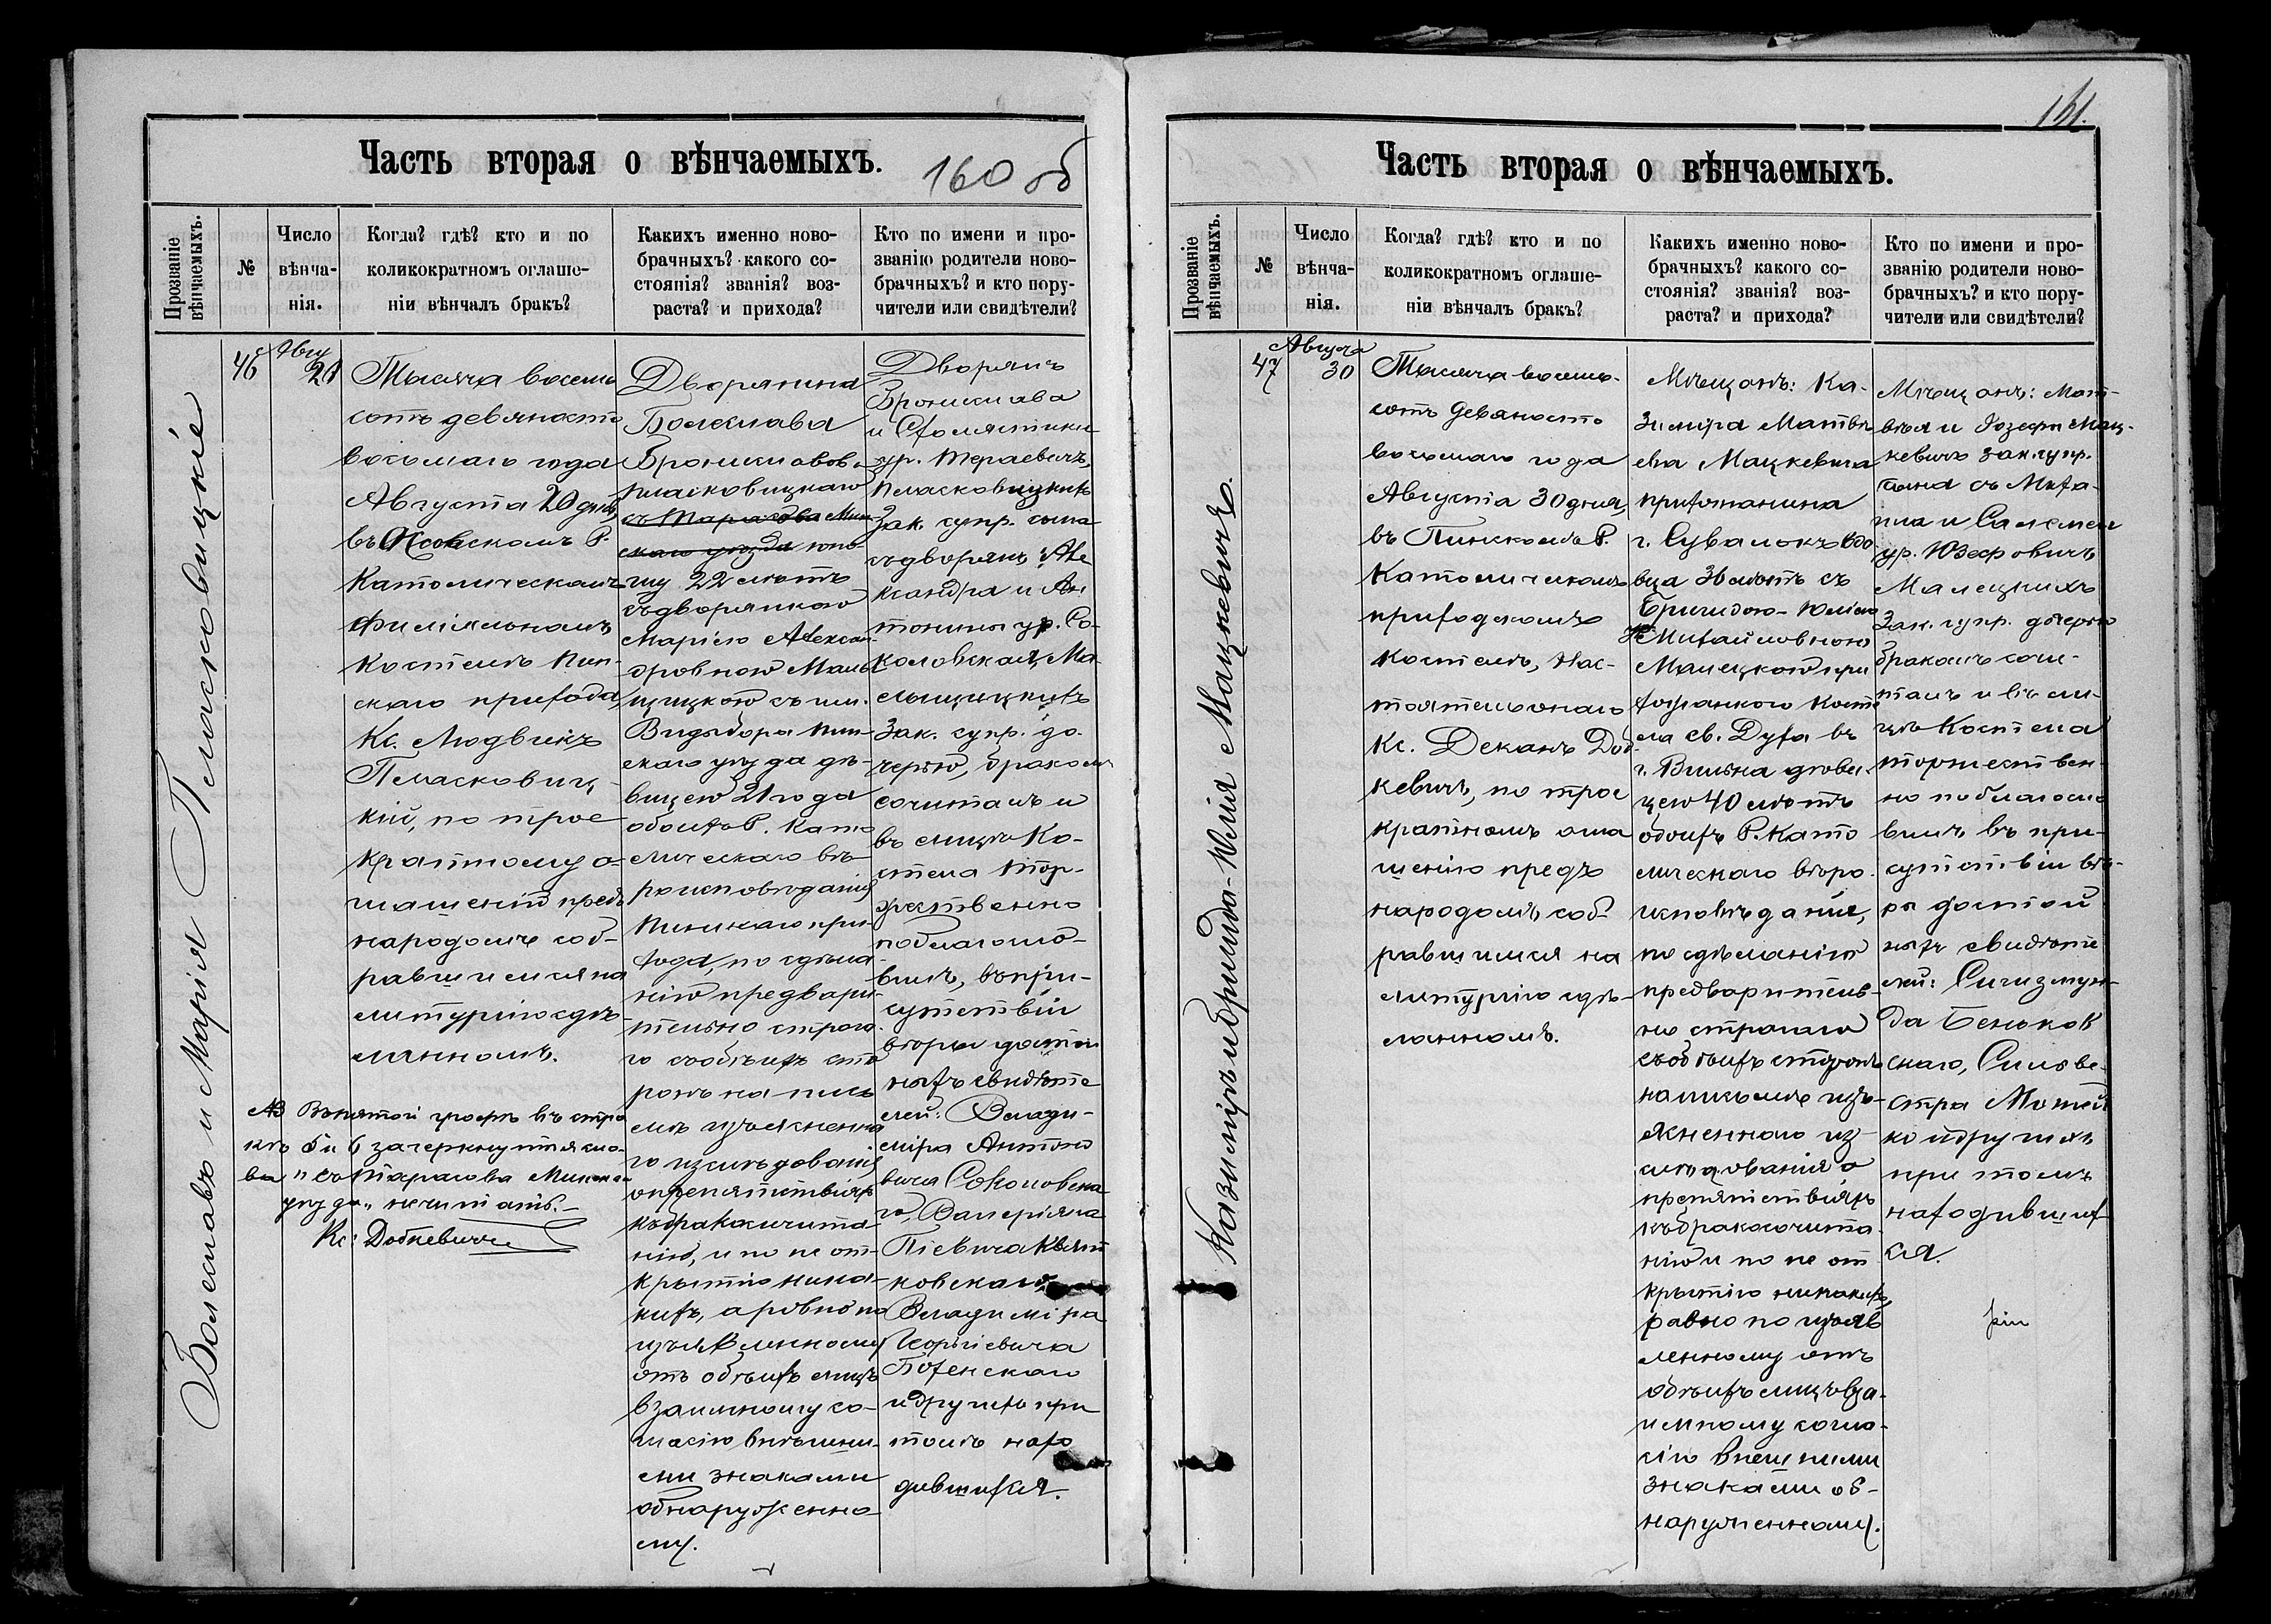 Часть вторая о вѣнчаемыхъ.
160 об
Прозваніе вѣнчаемыхъ.
№
Число вѣнча-
нія.
Когда? гдѣ? кто и по
коликократномъ оглаше-
ніи вѣнчалъ бракъ?
Какихъ именно ново-
брачныхъ? какого со-
стоянія? званія? воз-
раста? и прихода?
Кто по имени и про-
званію родители ново-
брачныхъ? и кто пору-
чители или свидѣтели?
Болеславъ и Марія Пласковицкіе
46
Авгу
Тысяча восемь
сотъ девяносто
восьмаго года
Августа 20 дня,
въ Р.
Католическомъ
Филіяльномъ
Костелѣ Пин-
скаго прихода
Кс. Людвикъ
Пласковиц-
кій, по трое
кратному о-
глашеніи предъ
народомъ соб-
равшимся на
литургію сдѣ-
ланномъ.
NB Въ пятой графѣ въ стро
кѣ 5 и 6 зачеркнутыя сло-
ва "съ Тарасова Минска
уѣзда" не читать.-
Кс: Добкевичъ
Дворянина
Болеслава
Брониславов.
Пласковицкаго
съ Тарасова Мин
скаго уѣзда юно-
шу 22 лѣтъ
съ дворянкою
Маріею Алексан-
дровною Маль
щицкою съ им.
Видибора Пин-
скаго уѣзда дѣ-
вицею 21 года
обоихъ Р. Като
лическаго вѣ-
роисповѣданія
Пинскаго при-
хода, по сдѣла-
нію предвари-
тельно строга
го съ обѣихъ сто
ронъ на пись
мѣ изъясненна
го изслѣдованія
о препятствіяхъ
къ бракосочета
нію, и по не от-
крытію ника-
кихъ, а ровно по
изъявленному
отъ обѣихъ лицъ
взаимному со-
гласію внѣшни-
ми знаками
обнаруженно-
му.
Дворянъ
Бронислава
и Схолястики
ур.
Пласковицкихъ
Зак. супр. сына
съ дворянъ Але
ксандра и Ан
тонины ур. Со-
коловская, Ма-
льщицкихъ
Зак. супр. до-
черью, бракомъ
сочеталъ и
въ лицѣ Ко-
стела тор-
жественно
поблагосло-
вилъ, въ при-
сутствіи
вѣры достой
ныхъ свидѣте
лей: Влади-
міра Антоно
вича Соколовска-
го, Валеріяна
ковскаго,
Владиміра
Георгіевича
и другихъ при
томъ нахо
дившихся.
161.
Часть вторая о вѣнчаемыхъ.
Прозваніе вѣнчаемыхъ.
№
Число вѣнча-
нія.
Когда? гдѣ? кто и по
коликократномъ оглаше-
ніи вѣнчалъ бракъ?
Какихъ именно ново-
брачныхъ? какого со-
стоянія? званія? воз-
раста? и прихода?
Кто по имени и про-
званію родители ново-
брачныхъ? и кто пору-
чители или свидѣтели?
Казиміръ и Бригида-Юлія Мацкевичъ.
47
Августа
30
Тысяча восемь-
сотъ девяносто
восьмаго года
Августа 30 дня,
въ Пинскомъ Р.
Католическомъ
приходскомъ
Костелѣ, Нас-
тоятель онаго
Кс. Деканъ Доб-
кевичъ, по трое
кратномъ огла
шенію предъ
народомъ соб-
равшимся на
литургію сдѣ-
ланномъ.
Мѣщанъ: Ка-
зиміра Матвѣ
ева Мацкевича
прихожанина
г. Сувалокъ вдо
вца 36 лѣтъ съ
Бригидою-Юліею
Михайловною
Малецкою при
хожанкою Косте
ла св. Духа въ
г. Вильна дѣви-
цею 40 лѣтъ
обоихъ Р. Като
лическаго вѣро-
исповѣданія,
по сдѣланію
предваритель-
но строгаго
съ обѣихъ сторонъ
на письмѣ изъ-
ясненнаго из-
слѣдованія о
препятствіяхъ
къ бракосочета
нію и по не от
крытію никакихъ,
равно по изъяв
ленному отъ
обѣихъ лицъ вза-
имному согла-
сію внешними
знаками об-
наруженному.
Мѣщанъ: Мат-
вѣя и Іозефы Мац-
кевичъ зак. супр.
сына съ Миха-
ила и Саломеи
ур. Юзефовичъ
Малецкихъ
Зак. супр. дочерью
бракомъ соче-
талъ и въ ли-
цѣ Костела
торжествен-
но поблагосло
вилъ въ при-
сутствіи вѣ-
ры достой
ныхъ свидѣте
лей: Сигизмун-
да Беньков
скаго, Сильве-
стра Мотей
ко и другихъ
при томъ
находивших
ся.